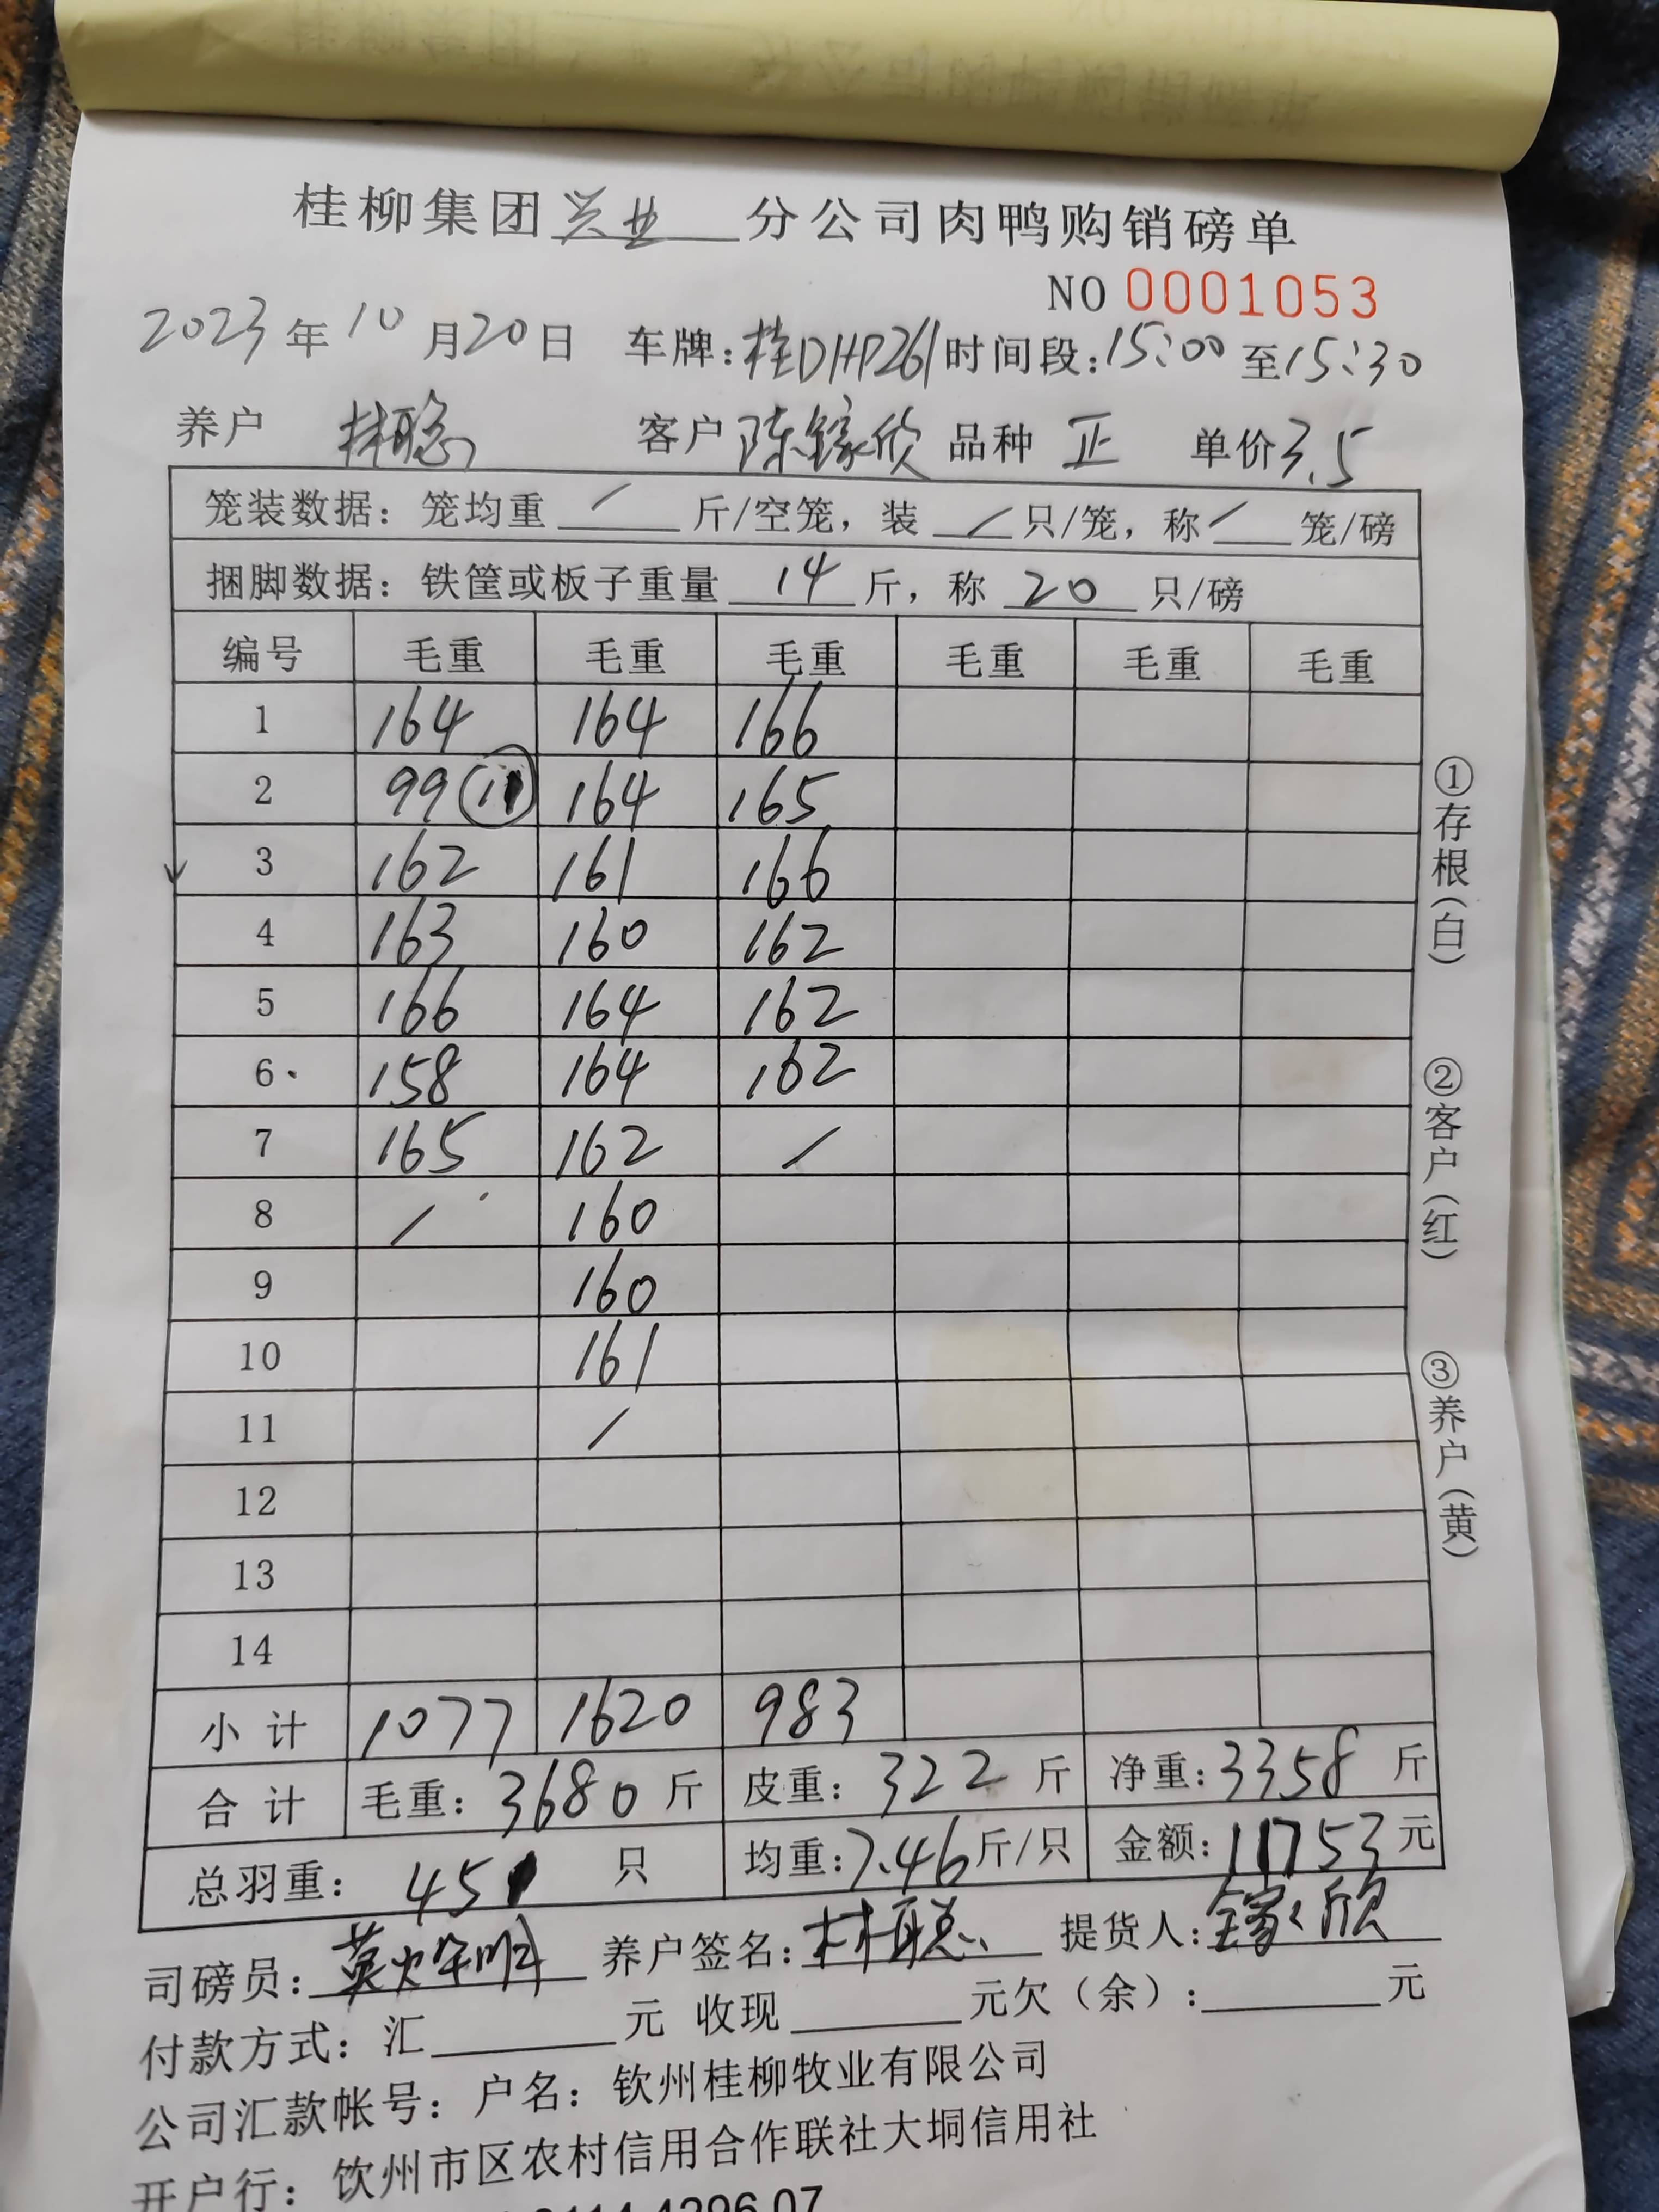 桂柳集团兴业分公司肉鸭购销磅单
NO 0001053
2023年10月20日 车牌:桂DHP261 时间段:15:00至15:30
养户 林聪 客户 陈镓欣 品种 正 单价3.5
笼装数据：笼均重 / 斤/空笼，装 / 只/笼，称 / 笼/磅
捆脚数据：铁筐或板子重量 14 斤，称 20 只/磅
编号 毛重 毛重 毛重 毛重 毛重 毛重
1 164 164 166
2 99 11 164 165
3 162 161 166
4 163 160 162
5 166 164 162
6 158 164 162
7 165 162 /
8 / 160
9 160
10 161
11 /
12
13
14
小计 1077 1620 983
合计 毛重：3680斤 皮重：322斤 净重:3358斤
总羽重：451只 均重:7.46斤/只 金额:11753元
司磅员: 养户签名:林聪 提货人:镓欣
付款方式：汇 元 收现 元欠（余）: 元
公司汇款帐号：户名：钦州桂柳牧业有限公司
开户行：钦州市区农村信用合作联社大垌信用社
①存根(白)
②客户(红)
③养户(黄)